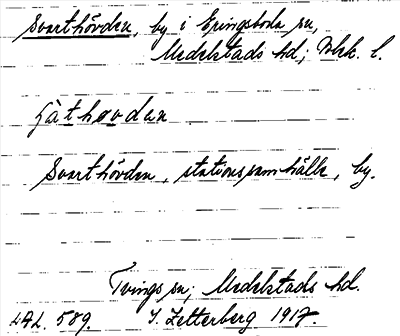 Svarthövden, by i Eringsboda sn,
Medelstads hd; Blek. l.
Svarthövden, stationssamhälle, by.
Tvings sn; Medelstads hd.
LAL. 589. I. Zetterberg 1917